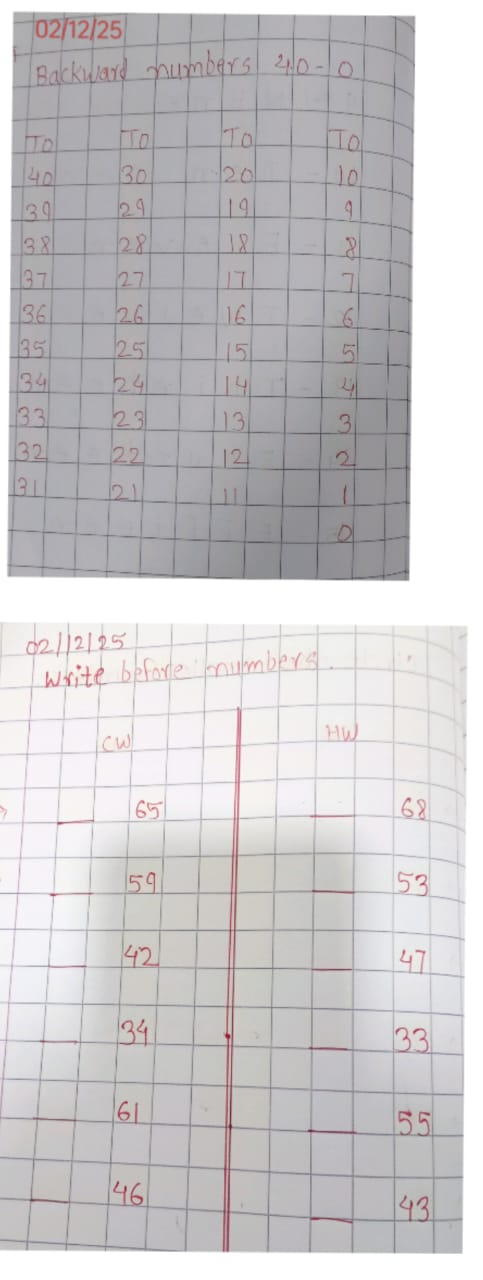 02/12/25
Backward numbers 40-0
TO TO TO TO
40 30 20 10
39 29 19 9
38 28 18 8
37 27 17 7
36 26 16 6
35 25 15 5
34 24 14 4
33 23 13 3
32 22 12 2
31 21 11 1
0
02/12/25
Write before numbers.
CW HW
__ 65 __ 68
__ 59 __ 53
__ 42 __ 47
__ 34 __ 33
__ 61 __ 55
__ 46 __ 43